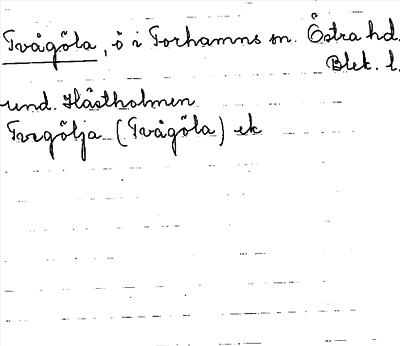 Tvågöla, ö i Torhamns sn. Östra hd.
Blek. l.
und. Hästholmen
Tvegölja (Tvågöla) ek